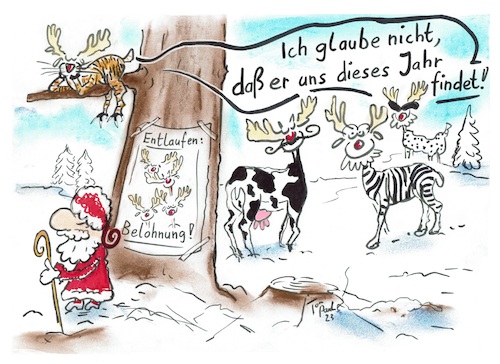 Ich glaube nicht,
daß er uns dieses Jahr
findet!
Entlaufen:
Belohnung!
23